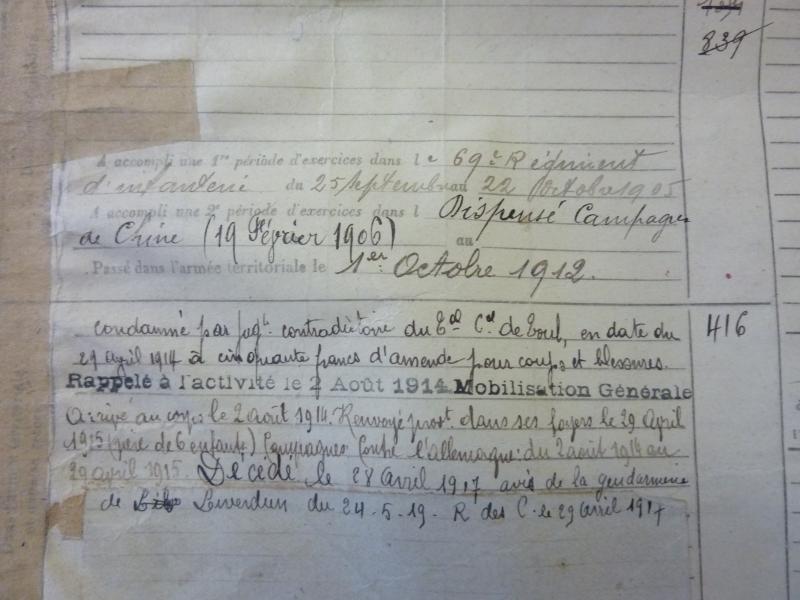 839
A accompli une 1re période d'exercices dans l e 69e Régiment
d'infanterie du 25 septembre au 22 Octobre 1905
A accompli une 2e période d'exercices dans l Dispensé Campagne
de Chine (19 Février 1906) au
Passé dans l'armée territoriale le 1er Octobre 1912.
Condamné par jugt contradictoire du Tal Cel de Toul, en date du
416
29 avril 1914 à cinquante francs d'amende pour coups et blessures.
Rappelé à l'activité le 2 Août 1914 Mobilisation Générale
Arrivé au corps le 2 août 1914. Renvoyé provt dans ses foyers le 29 Avril
1915 (père de 6 enfants) Campagnes Contre l'allemagne: du 2 août 1914 au
29 avril 1915. Décédé le 28 Avril 1917 avis de la gendarmerie
de Liverdun du 24-5-19. R des C. le 29 avril 1917